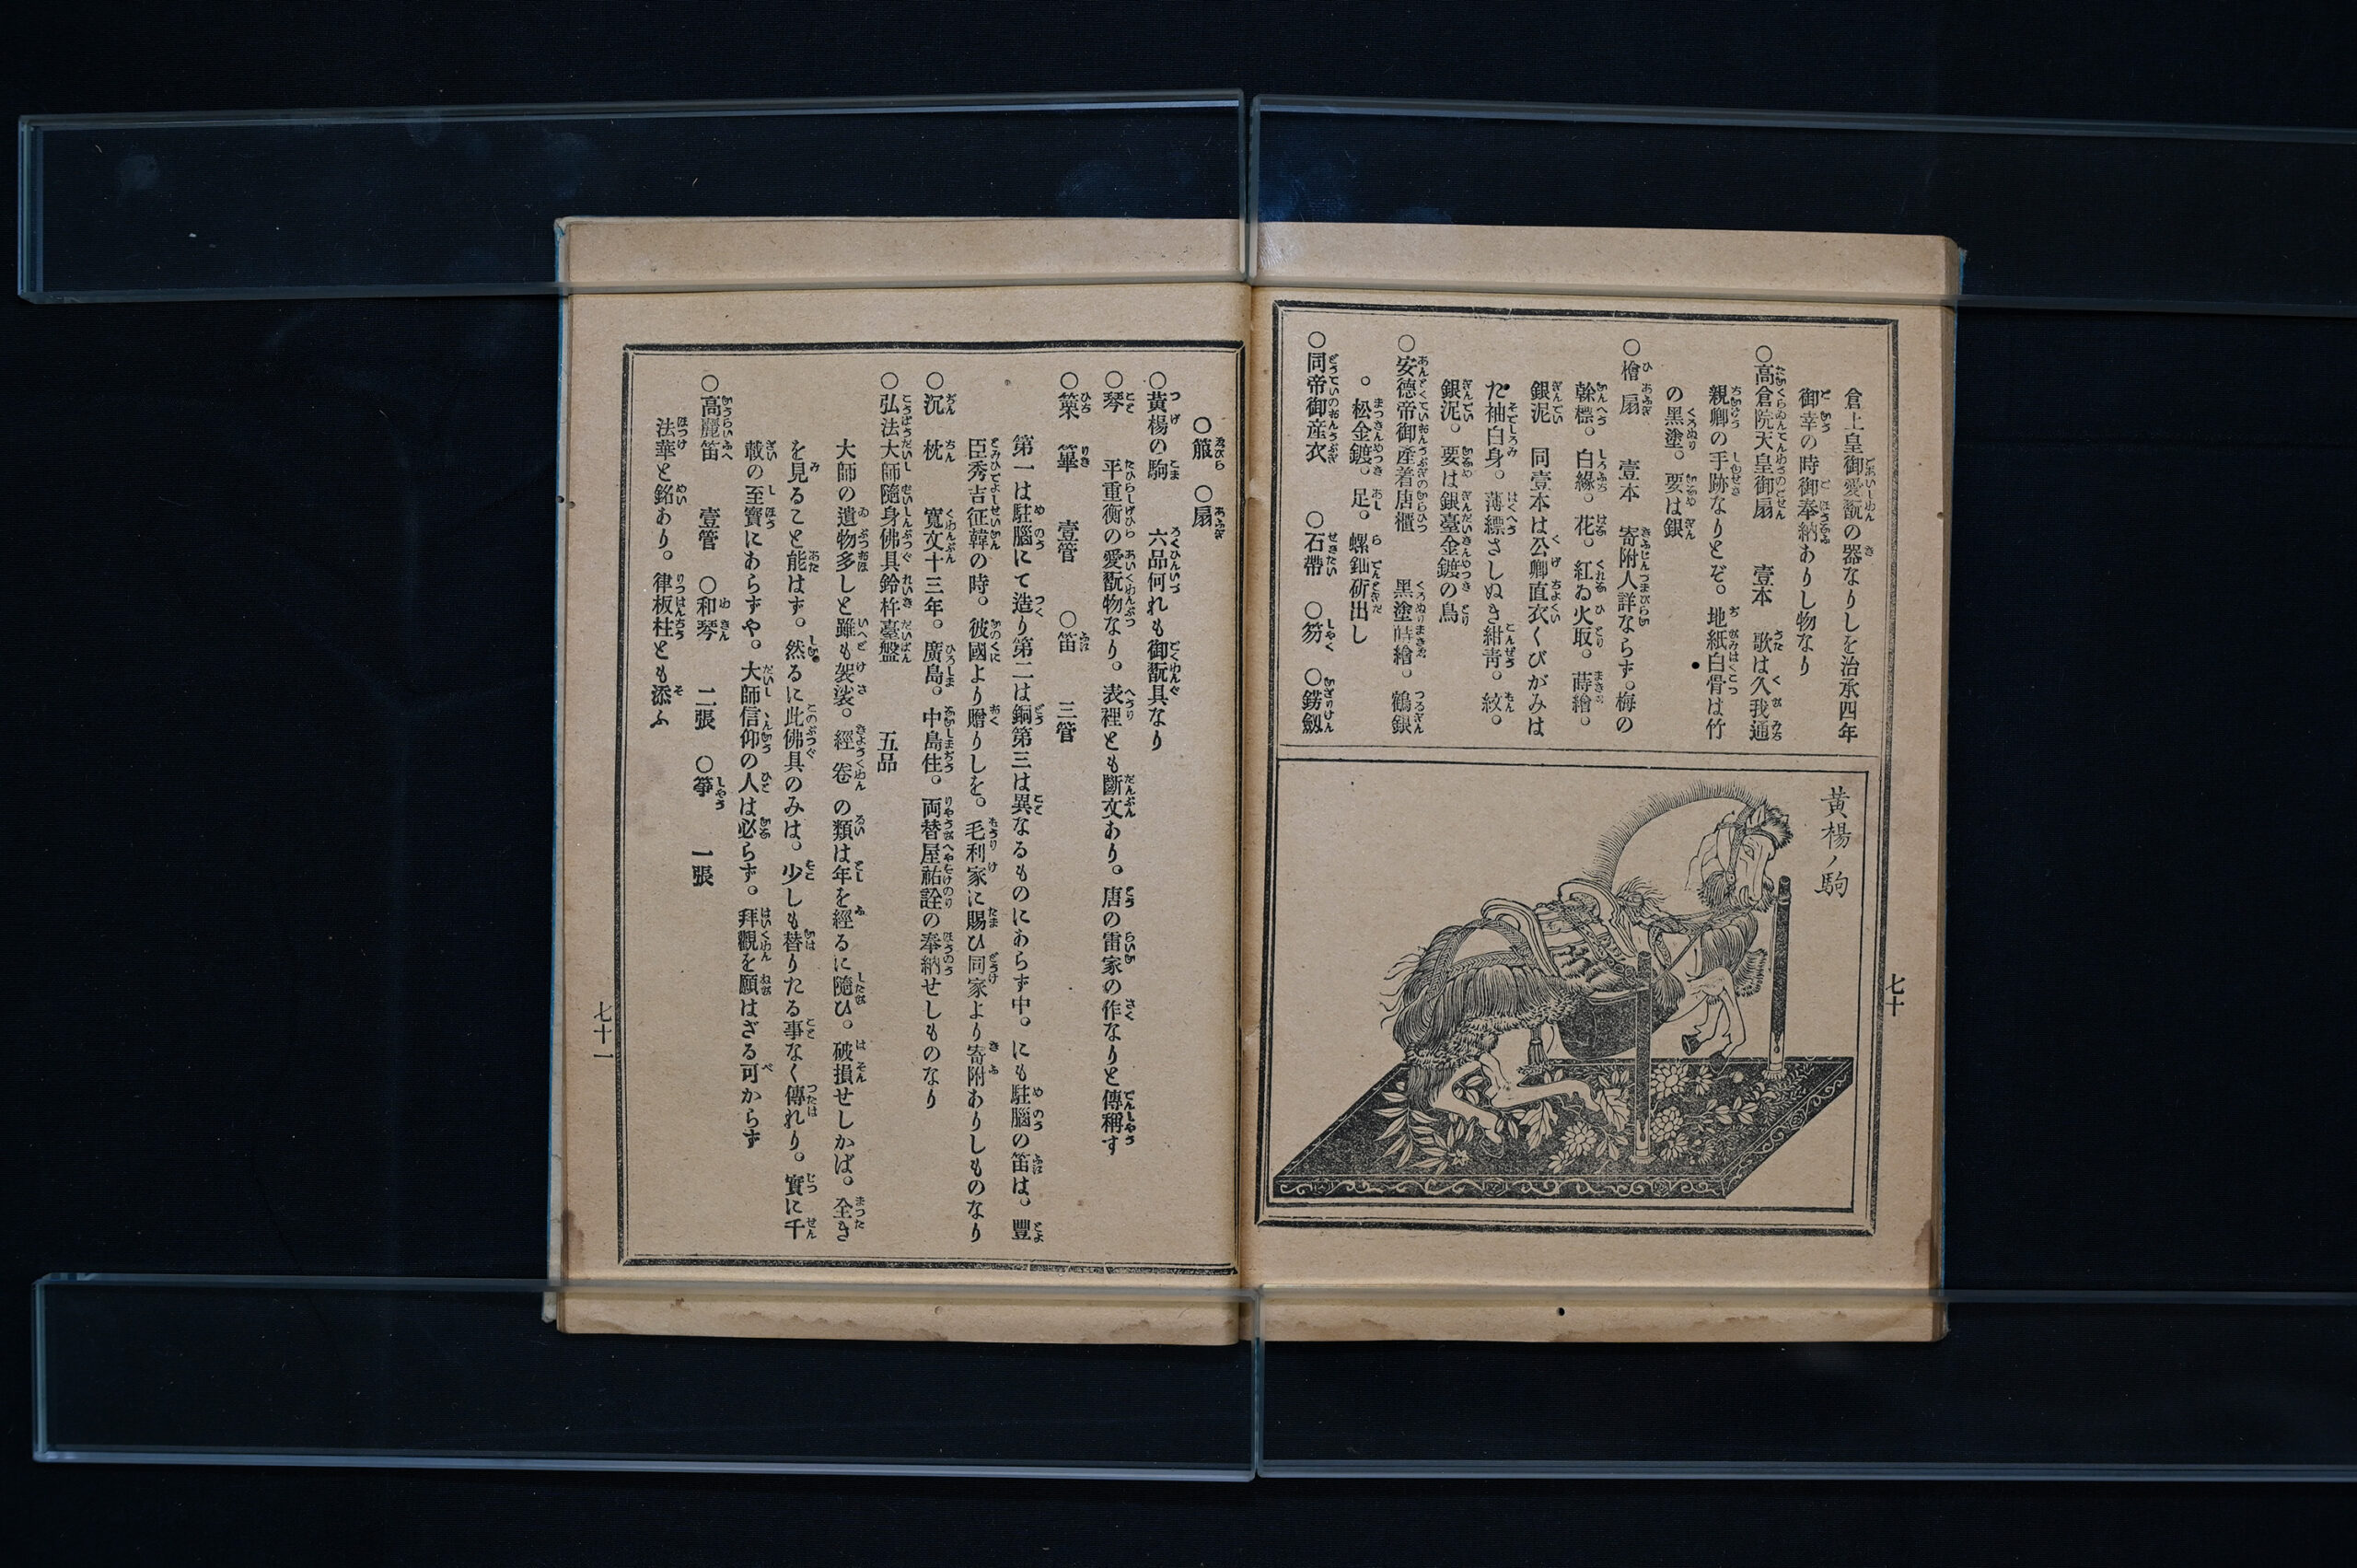 倉上皇御愛翫の器なりしを治承四年
御幸の時御奉納ありし物なり
○高倉院天皇御扇 壹本 歌は久我通
親卿の手跡なりとぞ。地紙白骨は竹
の黑塗。要は銀
○檜扇 壹本 寄附人詳ならず。梅の
幹標。白緣。花。紅ゐ火取。蒔繪。
銀泥 同壹本は公卿直衣くびがみは
た袖白身。薄縹さしぬき紺靑。紋。
銀泥。要は銀臺金鍍の鳥
○安德帝御產着唐櫃 黑塗蒔繪。鶴銀
。松金鍍。足。螺鈿硏出し
○同帝御産衣 ○石帶 ○笏 ○錺劔
黃楊ノ駒
七十
○箙 ○扇
○黃楊の駒 六品何れも御翫具なり
○琴 平重衡の愛翫物なり。表裡とも斷文あり。唐の雷家の作なりと傳稱す
○篥篳 壹管 ○笛 三管
第一は駐腦にて造り第二は銅第三は異なるものにあらず中。にも駐腦の笛は。豐
臣秀吉征韓の時。彼國より贈りしを。毛利家に賜ひ同家より寄附ありしものなり
○沉枕 寬文十三年。廣島。中島住。両替屋祐詮の奉納せしものなり
○弘法大師隨身佛具鈴杵臺盤 五品
大師の遺物多しと雖も袈裟。經卷の類は年を經るに隨ひ。破損せしかば。全き
を見ること能はず。然るに此佛具のみは。少しも替りたる事なく傳れり。實に千
載の至寶にあらずや。大師信仰の人は必らず。拜觀を願はざる可からず
○高麗笛 壹管 ○和琴 二張 ○箏 一張
法華と銘あり。律板柱とも添ふ
七十一